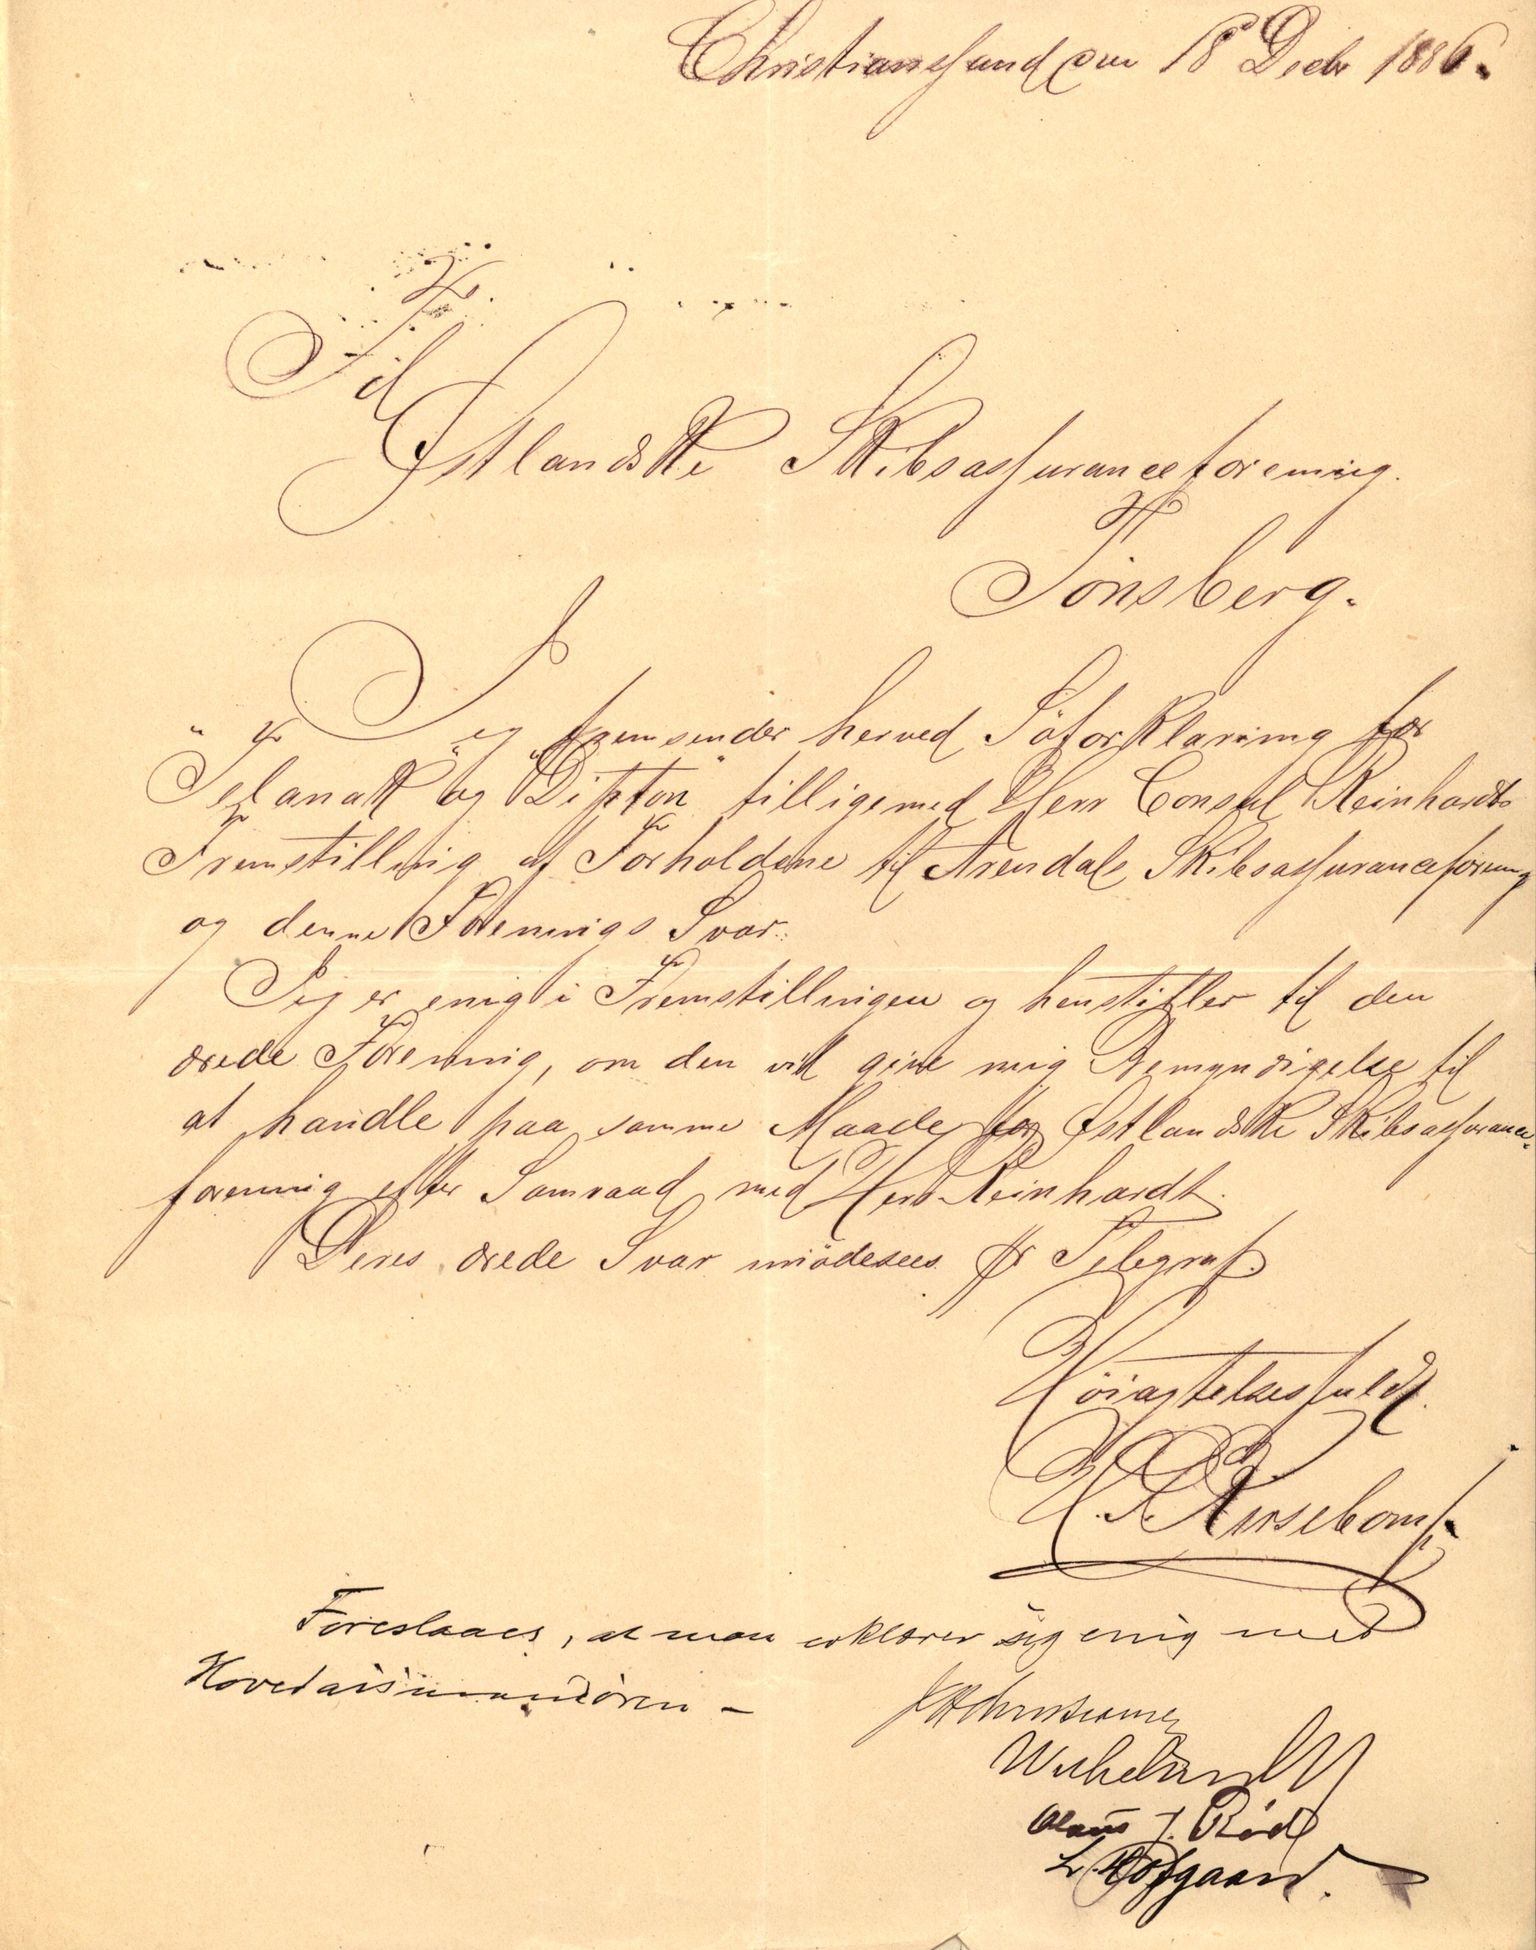 Christianssund den 18 Decbr 1886.
Til
Østlandske Skibsassuranceforening.
Tönsberg.
Jeg fremsender herved Söforklaring for
"Telanak" og "Dipton" tilligemed Herr Consul Reinhardts
Fremstilling af Forholdene til Arendals Skibsassuranceforening
og denne Forenings Svar.
Jeg er enig i Fremstillingen og henstiller til den
ærede Forening, om den vil give mig Bemyndigelse til
at handle paa samme Maade for Østlandske Skibsassurance-
forening efter Samraad med Herr Reinhardt.
Deres ærede Svar imödesees pr Telegraf.
Höiagtelsesfuldt
Kirsebom
Foreslaaes, at man erklærer sig enig med
Hovedassurandören –
J. Röd
L. Hofgaard.